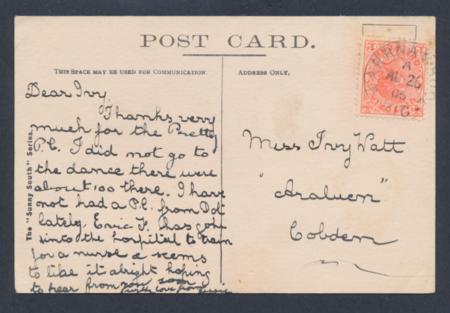 POST CARD.
THIS SPACE MAY BE USED FOR COMMUNICATION.
ADDRESS ONLY.
The "Sunny South" Series.
Dear Ivy,
Thanks very
much for the Pretty
P.C. I did not go to
the dance there were
about 100 there. I have
not had a P.C. from Dol
lately. Eric F. has gone
into the hospital to train
for a nurse & seems
to like it alright hoping
to hear from you soon
with love from
Miss Ivy Watt
"Araluen"
Cobden